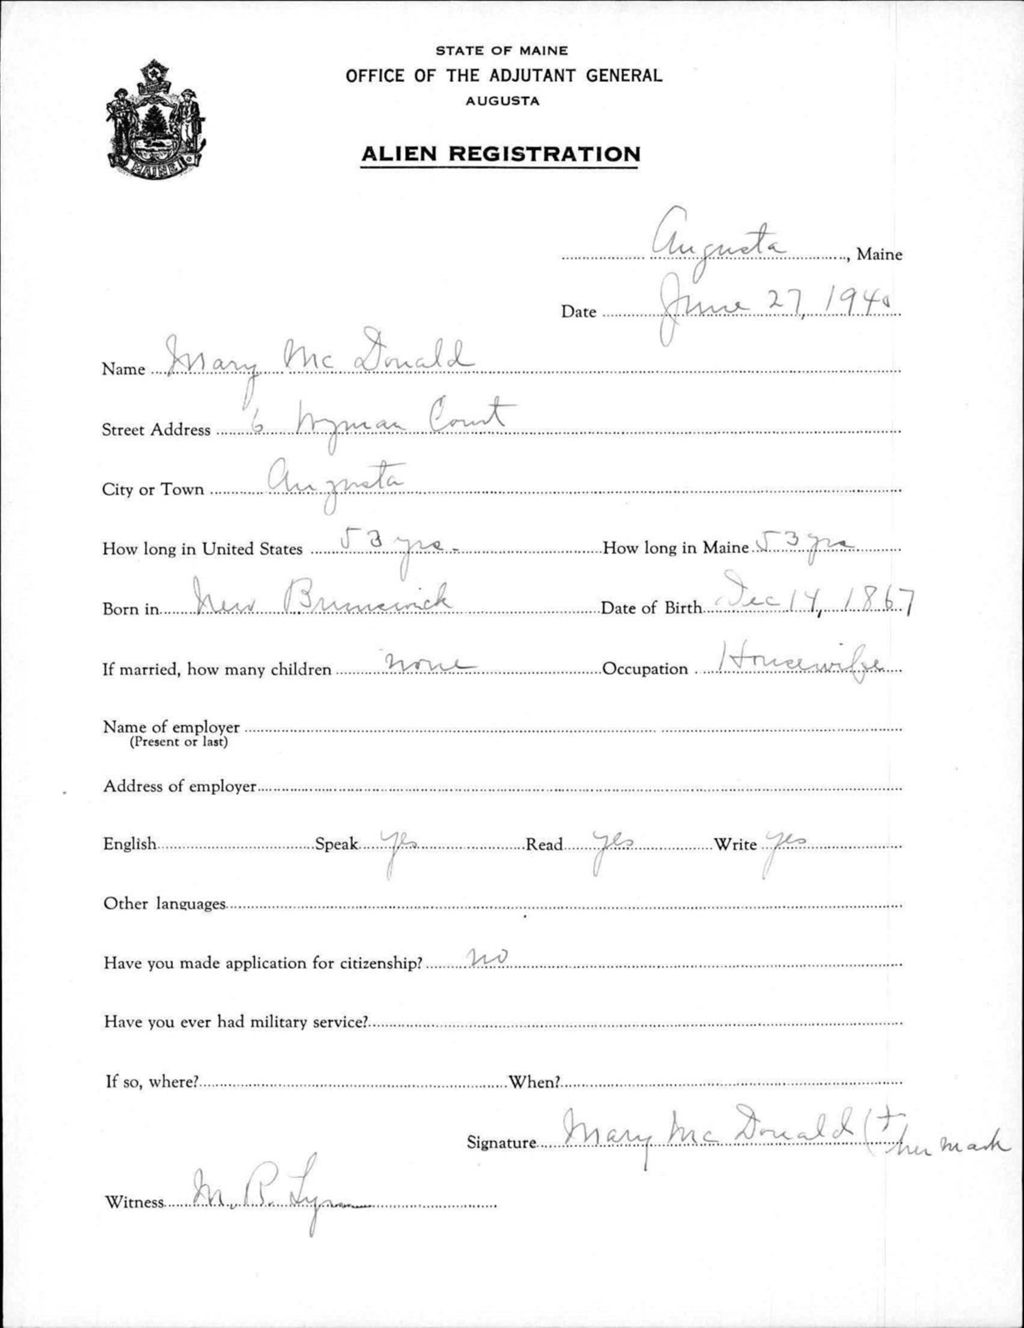 STATE OF MAINE
OFFICE OF THE ADJUTANT GENERAL
AUGUSTA
ALIEN REGISTRATION
MAINE
Augusta, Maine
Date June 27, 1940
Name Mary Mc Donald
Street Address 6 Wyman Court
City or Town Augusta
How long in United States 53 yrs. How long in Maine 53 yrs
Born in New Brunswick Date of Birth Dec 14, 1867
If married, how many children none Occupation Housewife
Name of employer
(Present or last)
Address of employer
English Speak yes Read yes Write yes
Other languages
Have you made application for citizenship? no
Have you ever had military service?
If so, where? When?
Signature Mary Mc Donald (+ her mark
Witness M. P.